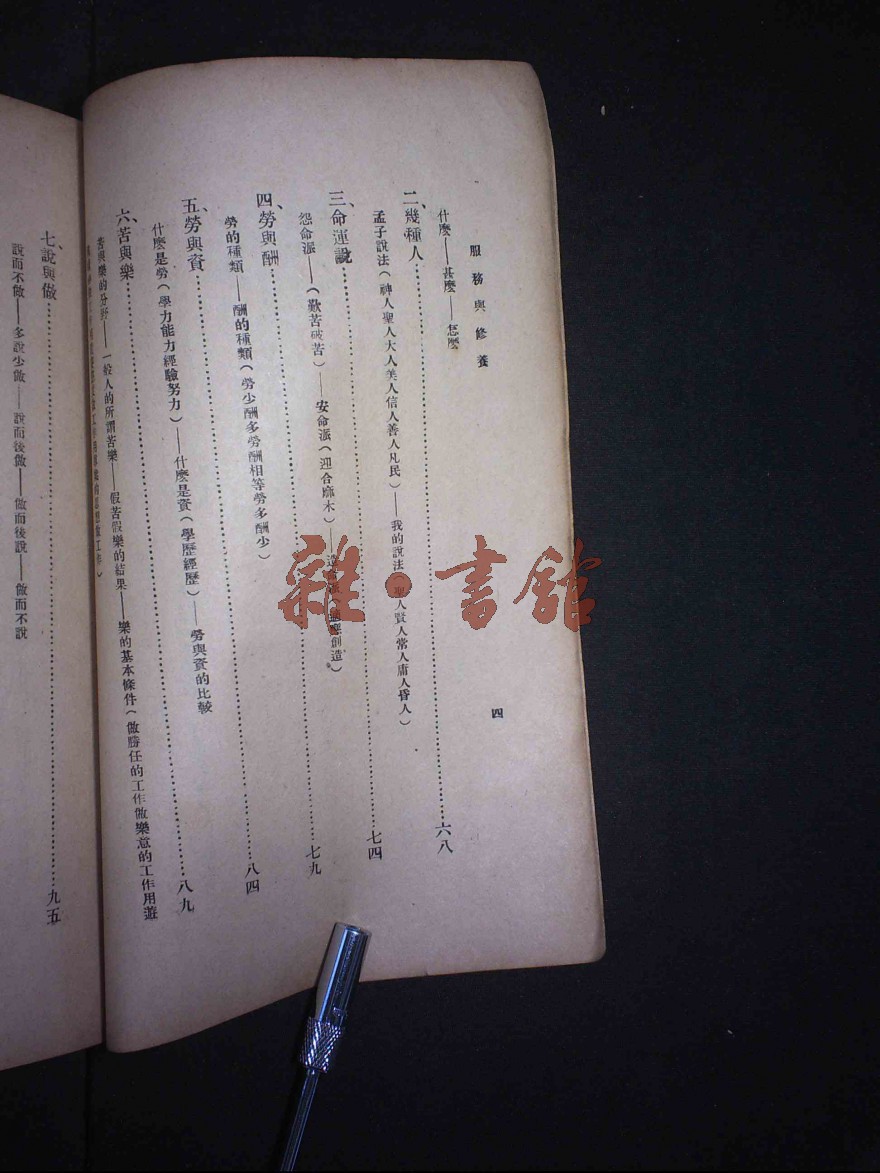 服務與修養
四
什麽——甚麽——怎麽
二、幾種人……六八
孟子說法(神人聖人大人美人信人善人凡民)——我的說法(聖人賢人常人庸人昏人)
三、命運說……七四
怨命派——(歎苦破苦)——安命派(迎合麻木)——造命派(適應創造。)
四、勞與酬……七九
勞的種類——酬的種類(勞少酬多勞酬相等勞多酬少)
五、勞與資……八四
什麽是勞(學力能力經驗努力)——什麽是資(學歷經歷)——勞與資的比較
六、苦與樂……八九
苦與樂的分野——一般人的所謂苦樂——假苦假樂的結果——樂的基本條件(做勝任的工作做樂意的工作用遊
七、說與做……九五
說而不做——多說少做——說而後做——做而後說——做而不說
雜·書館